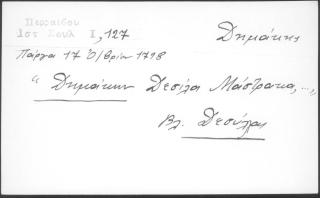 Περραιβού
Ιστ Σουλ Ι, 127
Δημάκης
Πάργα 17 Ο/βρίου 1798
"Δημάκην Δεσίλα Μάστρακα,...,
Βλ. Δεσύλας